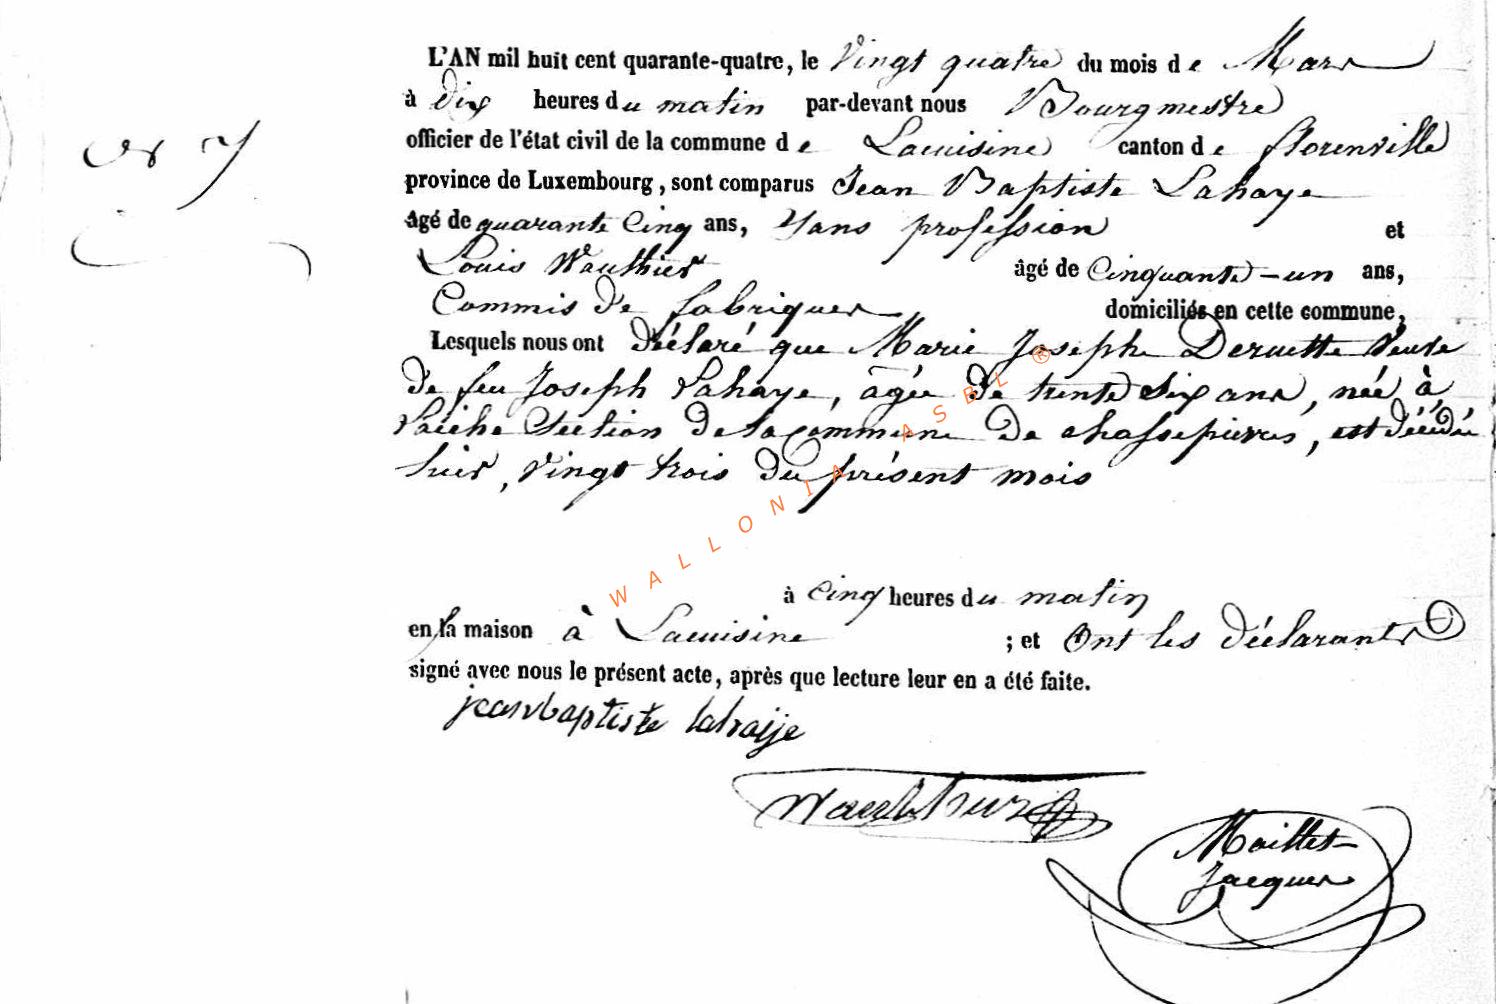 L'AN mil huit cent quarante-quatre, le Vingt quatre du mois de Mars
à dix heures du matin par-devant nous Bourgmestre
officier de l'état civil de la commune de Lacuisine canton de florenville
N° 7
province de Luxembourg, sont comparus Jean Baptiste Lahaye
âgé de quarante Cinq ans, Sans profession et
Louis Wauthier âgé de Cinquante-un ans,
Commis de fabriques domiciliés en cette commune,
Lesquels nous ont déclaré que Marie Josephe Deruette Veuve
de feu Joseph Lahaye, âgée de trente Six ans, née à
Laiche Section de la commune de chassepierre, est décédée
hier, vingt trois du présent mois
WALLONIA ASBL ®
à Cinq heures du matin
en la maison à Lacuisine ; et Ont les déclarants
signé avec nous le présent acte, après que lecture leur en a été faite.
jeanbaptiste lahaije
Wauthier
Maillet
Jacques